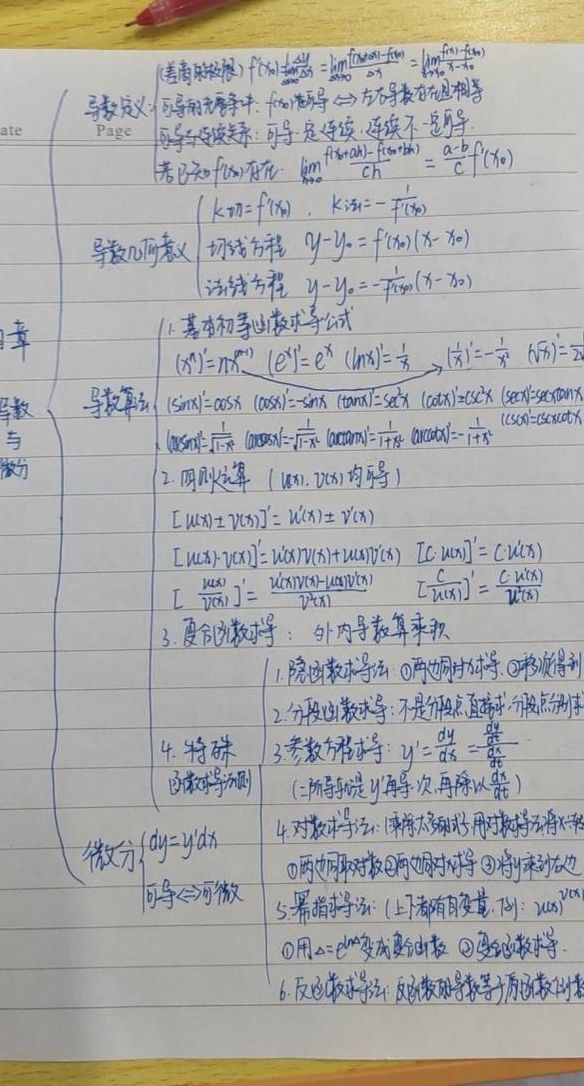 ate
Page
导数定义
(差商的极限) f'(x₀)=lim Δx→0 Δy/Δx = lim Δx→0 (f(x₀+Δx)-f(x₀))/Δx = lim x→x₀ (f(x)-f(x₀))/(x-x₀)
可导的充要条件: f(x)在 可导 ⟺ 左右导数存在且相等
可导与连续关系: 可导一定连续, 连续不一定可导.
若已知f'(x₀)存在. lim h→0 (f(x₀+ah)-f(x₀+bh))/(ch) = (a-b)/c f'(x₀)
导数几何意义
k切=f'(x₀) , k法=-1/f'(x₀)
切线方程 y-y₀=f'(x₀)(x-x₀)
法线方程 y-y₀=-1/f'(x₀)(x-x₀)
章
导数
与
微分
导数算法
1. 基本初等函数求导公式
(xⁿ)'=nx⁽ⁿ⁻¹⁾ (eˣ)'=eˣ (lnx)'=1/x (1/x)'=-1/x² (√x)'=1/2
(sinx)'=cosx (cosx)'=-sinx (tanx)'=sec²x (cotx)'=csc²x (secx)'=secxtanx
(cscx)'=cscxcotx
(arcsinx)'=1/√(1-x²) (arccosx)'=-1/√(1-x²) (arctanx)'=1/(1+x²) (arccotx)'=-1/(1+x²)
2. 四则运算 (u(x), v(x)均可导)
[u(x)±v(x)]'=u'(x)±v'(x)
[u(x)·v(x)]'=u'(x)v(x)+u(x)v'(x) [C·u(x)]'=C·u'(x)
[u(x)/v(x)]'=(u'(x)v(x)-u(x)v'(x))/v²(x) [C/u(x)]'=C·u'(x)/u²(x)
3. 复合函数求导: 外内导数算乘积
4. 特殊
函数求导法则
1. 隐函数求导法: ①两边同时对x求导. ②移项得到
2. 分段函数求导: 不是分段点直接求, 分段点分别求
3. 参数方程求导: y'=dy/dx=(dy/dt)/(dx/dt)
(二阶导就是y'再导一次, 再除以dx/dt)
4. 对数求导法: (乘除太多的式子用对数求导法将
①两边同取对数②两边同时对x求导 ③将y乘到右边
5. 幂指求导法: (上下都有自变量. 例: u(x)^v(x)
①用Δ=e^lnΔ变成复合函数 ②复合函数求导.
6. 反函数求导法: 反函数的导数等于原函数 倒数
微分
dy=y'dx
可导⟺可微